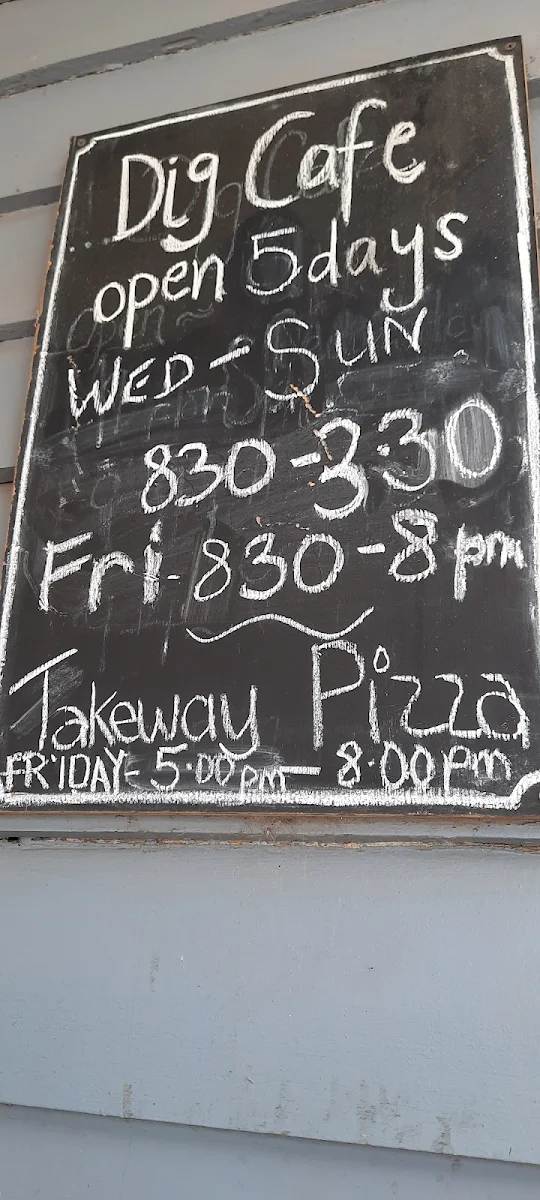 Dig Cafe
open 5 days
WED - SUN
830 - 3.30
Fri - 830 - 8 pm
Takeway Pizza
FRIDAY - 5.00 pm - 8.00 pm